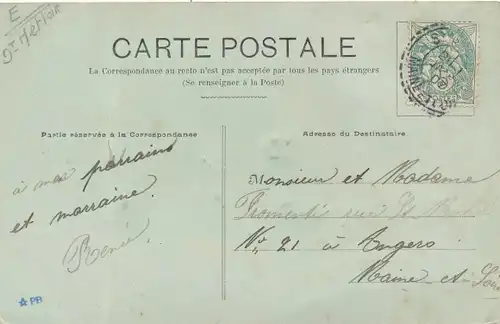 E
CARTE POSTALE
La Correspondance au recto n'est pas acceptée par tous les pays étrangers
(Se renseigner à la Poste)
Partie réservée à la Correspondance
Adresse du Destinataire
à mes parrains
et marraine.
Renée.
Monsieur et Madame
rue
No 21 à Angers
Maine-et-Loire
PB